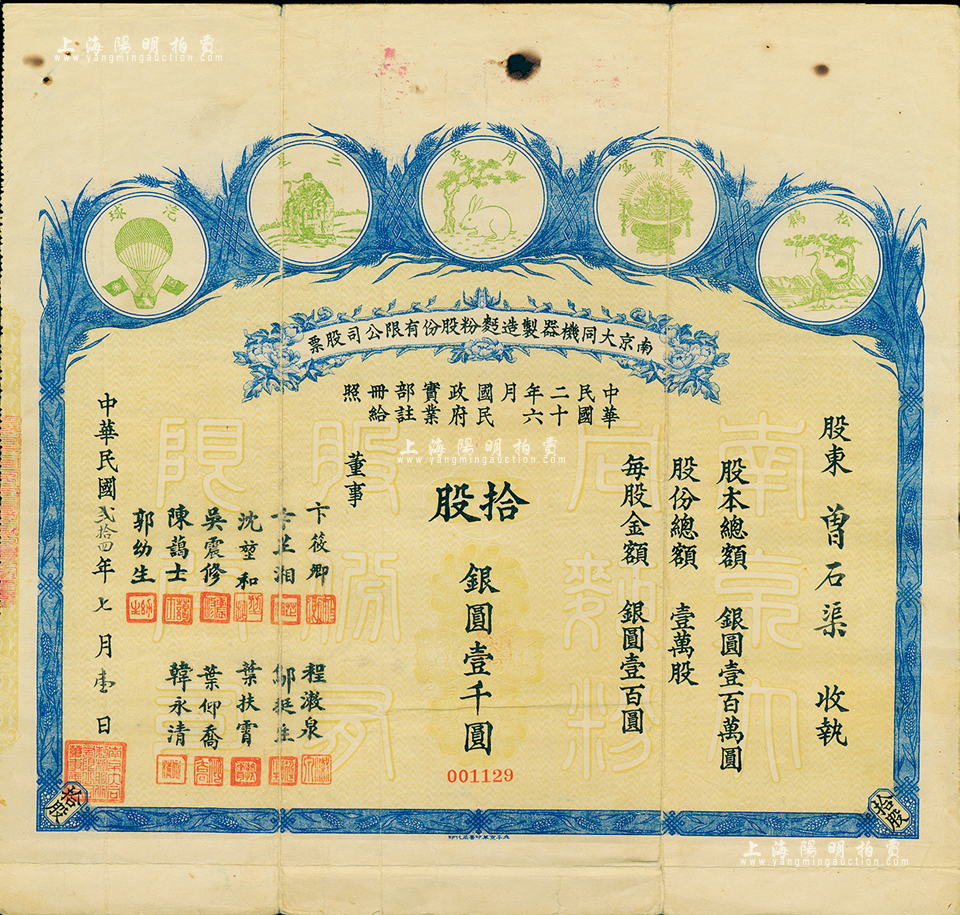 上海陽明拍賣
www.yangmingauction.com
松鶴
聚寶盆
月兔
三星
汽球
南京大同機器製造麪粉股份有限公司股票
中華
民國
二十
年六
月
國民
政府
實業
部註
冊給
照
股東 曾石渠 收執
股本總額 銀圓壹百萬圓
股份總額 壹萬股
每股金額 銀圓壹百圓
拾股
銀圓壹千圓
001129
董事
卞筱卿
卞芷湘
沈堃和
吳震修
陳藹士
郭幼生
程漱泉
鄔挺生
葉扶霄
葉仰喬
韓永清
中華民國貳拾四年七月壹日
拾股
拾股
上海陽明拍賣
www.yangmingauction.com
上海陽明拍賣
www.yangmingauction.com